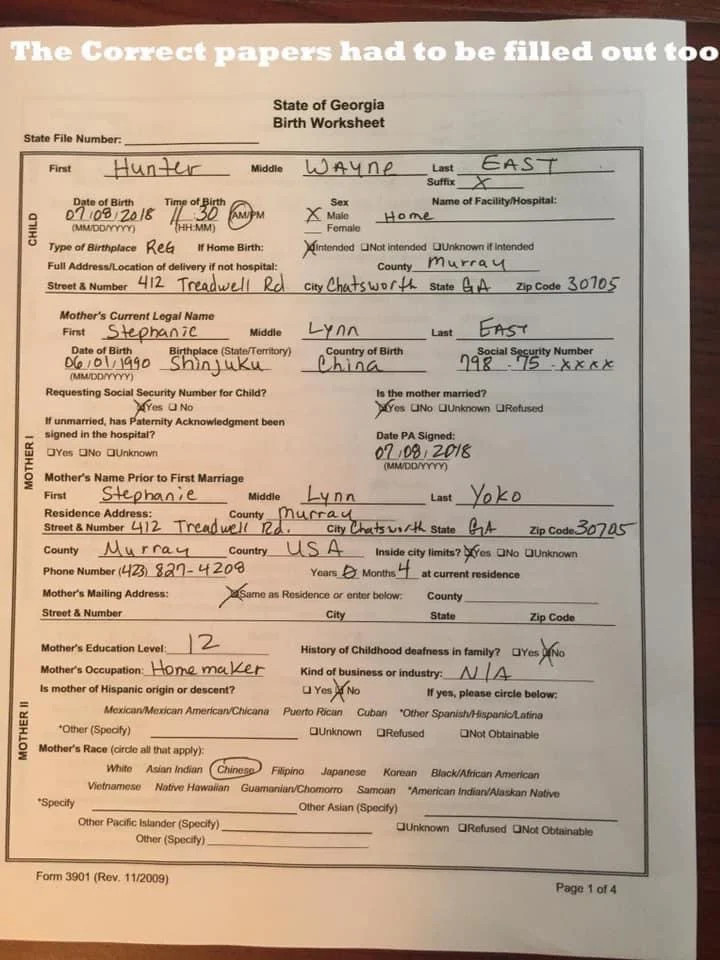 The Correct papers had to be filled out too
State of Georgia
Birth Worksheet
State File Number:
CHILD
First Hunter Middle Wayne Last EAST
Suffix X
Date of Birth Time of Birth Sex Name of Facility/Hospital:
07/08/2018 11:30 AM/PM X Male Home
(MM/DD/YYYY) (HH:MM) Female
Type of Birthplace ReG If Home Birth: Intended Not intended Unknown if intended
Full Address/Location of delivery if not hospital: County Murray
Street & Number 412 Treadwell Rd City Chatsworth State GA Zip Code 30705
MOTHER I
Mother's Current Legal Name
First Stephanie Middle Lynn Last EAST
Date of Birth Birthplace (State/Territory) Country of Birth Social Security Number
06/01/1990 Shinjuku China 798-75-xxxx
(MM/DD/YYYY)
Requesting Social Security Number for Child? Is the mother married?
Yes No Yes No Unknown Refused
If unmarried, has Paternity Acknowledgment been
signed in the hospital? Date PA Signed:
Yes No Unknown 07/08/2018
(MM/DD/YYYY)
Mother's Name Prior to First Marriage
First Stephanie Middle Lynn Last Yoko
Residence Address: County Murray
Street & Number 412 Treadwell Rd. City Chatsworth State GA Zip Code 30705
County Murray Country USA Inside city limits? Yes No Unknown
Phone Number (423) 827-4208 Years 0 Months 4 at current residence
Mother's Mailing Address: Same as Residence or enter below: County
Street & Number City State Zip Code
MOTHER II
Mother's Education Level: 12 History of Childhood deafness in family? Yes No
Mother's Occupation: Homemaker Kind of business or industry: N/A
Is mother of Hispanic origin or descent? Yes No If yes, please circle below:
Mexican/Mexican American/Chicana Puerto Rican Cuban *Other Spanish/Hispanic/Latina
*Other (Specify) Unknown Refused Not Obtainable
Mother's Race (circle all that apply):
White Asian Indian Chinese Filipino Japanese Korean Black/African American
Vietnamese Native Hawaiian Guamanian/Chomorro Samoan *American Indian/Alaskan Native
*Specify Other Asian (Specify)
Other Pacific Islander (Specify) Unknown Refused Not Obtainable
Other (Specify)
Form 3901 (Rev. 11/2009)
Page 1 of 4